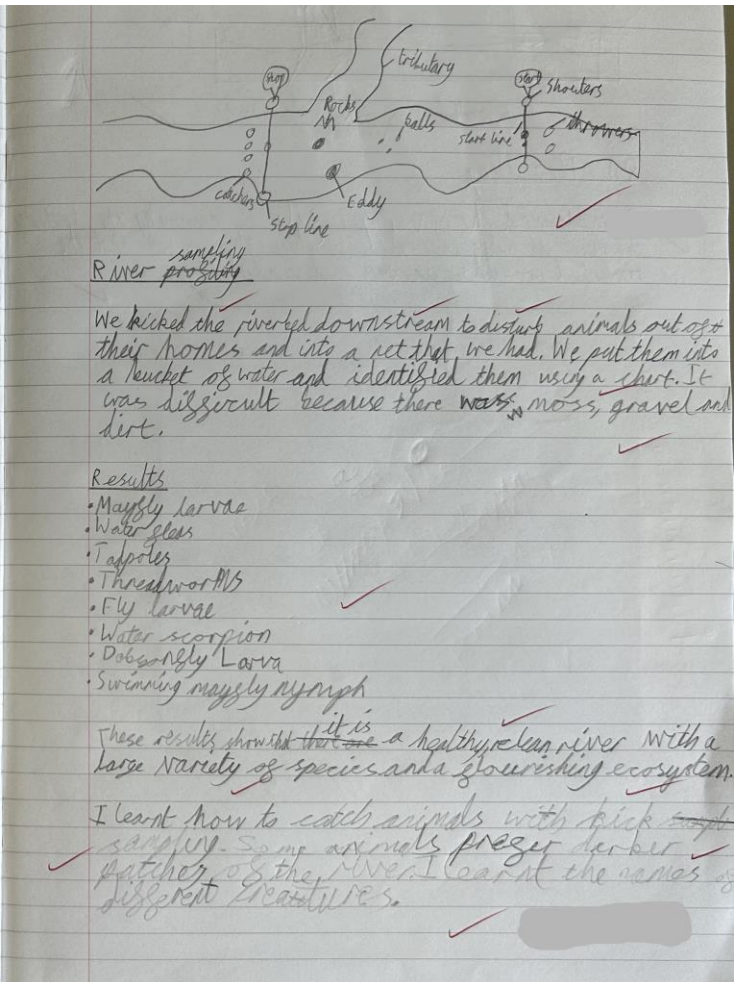 tributary
stop
start
Shouters
Rocks
balls
start line
throwers
catchers
Eddy
stop line
sampling
River profiling
We kicked the riverbed downstream to disturb animals out of
their homes and into a net that we had. We put them into
a bucket of water and identified them using a chart. It
was difficult because there was moss, gravel and
dirt.
Results
• Mayfly larvae
• Water fleas
• Tadpoles
• Threadworms
• Fly larvae
• Water scorpion
• Dobsonfly Larva
• Swimming mayfly nymph
it is
These results show that there are a healthy, clean river with a
large variety of species and a flourishing ecosystem.
I learnt how to catch animals with kick
sampling. Some animals prefer darker
patches of the river. I learnt the names of
different creatures.